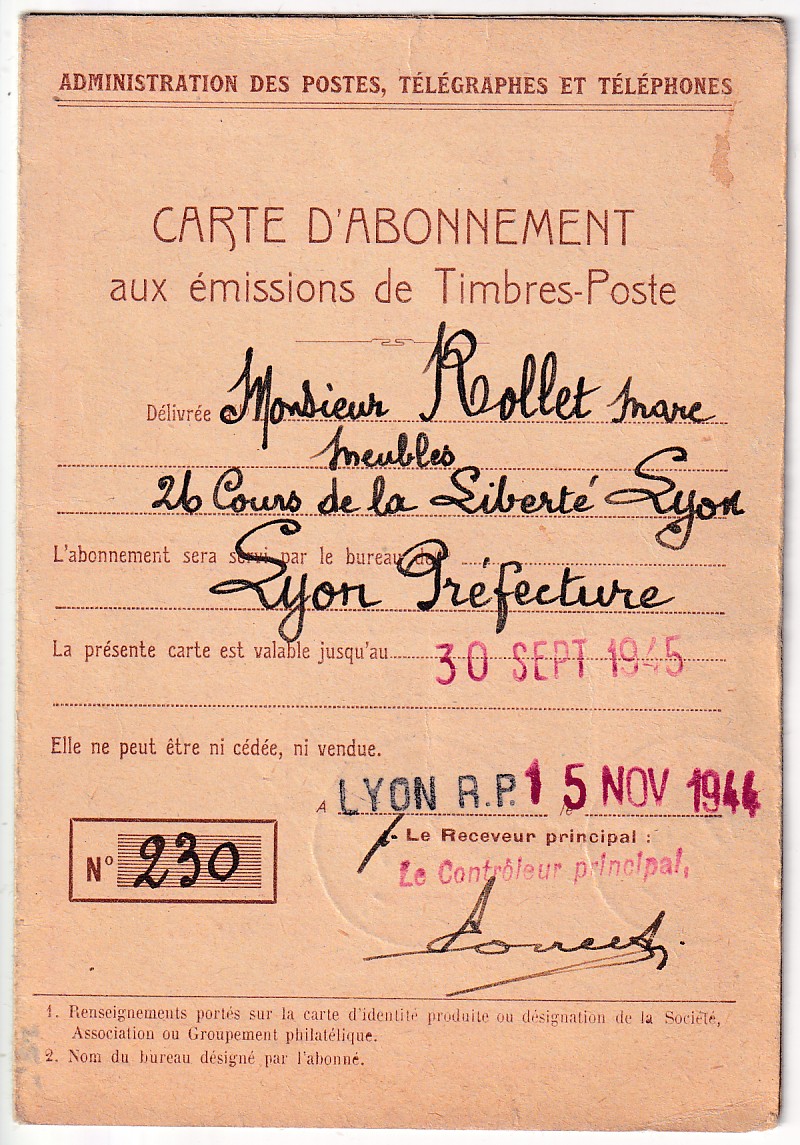 ADMINISTRATION DES POSTES, TÉLÉGRAPHES ET TÉLÉPHONES
CARTE D'ABONNEMENT
aux émissions de Timbres-Poste
Délivrée à Monsieur Rollet Marc
Meubles
26 Cours de la Liberté Lyon
L'abonnement sera servi par le bureau de
Lyon Préfecture
La présente carte est valable jusqu'au 30 SEPT 1945
Elle ne peut être ni cédée, ni vendue.
A LYON R.P. le 15 NOV 1944
Le Receveur principal :
Le Contrôleur principal,
N° 230
1. Renseignements portés sur la carte d'identité produite ou désignation de la Société,
Association ou Groupement philatélique.
2. Nom du bureau désigné par l'abonné.